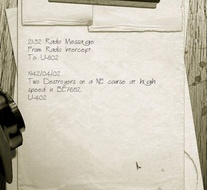 2132 Radio Message
From Radio Intercept
To: U-602

1942/04/02
Two Destroyers on a NE course at high
speed in BE7662.
U-602